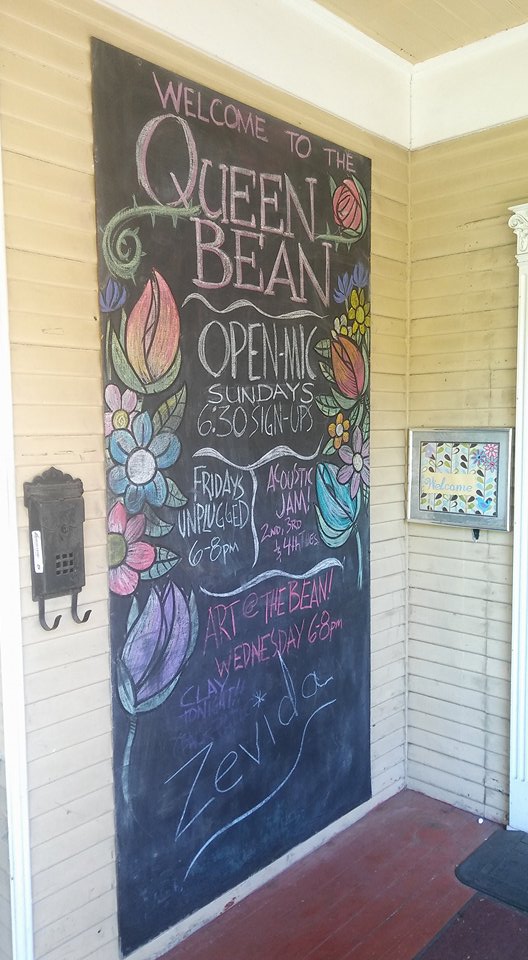 WELCOME TO THE
QUEEN
BEAN
OPEN-MIC
SUNDAYS
6:30 SIGN-UPS
FRIDAYS
UNPLUGGED
6-8pm
ACOUSTIC
JAM!
2ND, 3RD
& 4TH TUES
ART @ THE BEAN!
WEDNESDAY 6-8pm
CLAY
TONIGHT!
Zevida
Welcome